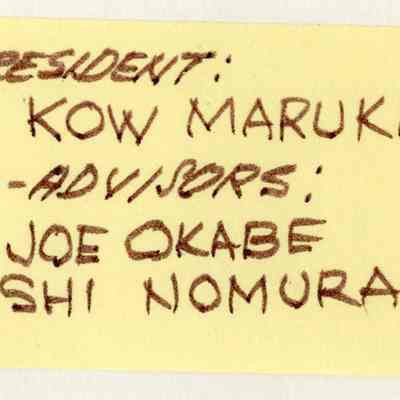 RESIDENT:
KOW MARUK
-ADVISORS:
JOE OKABE
SHI NOMURA